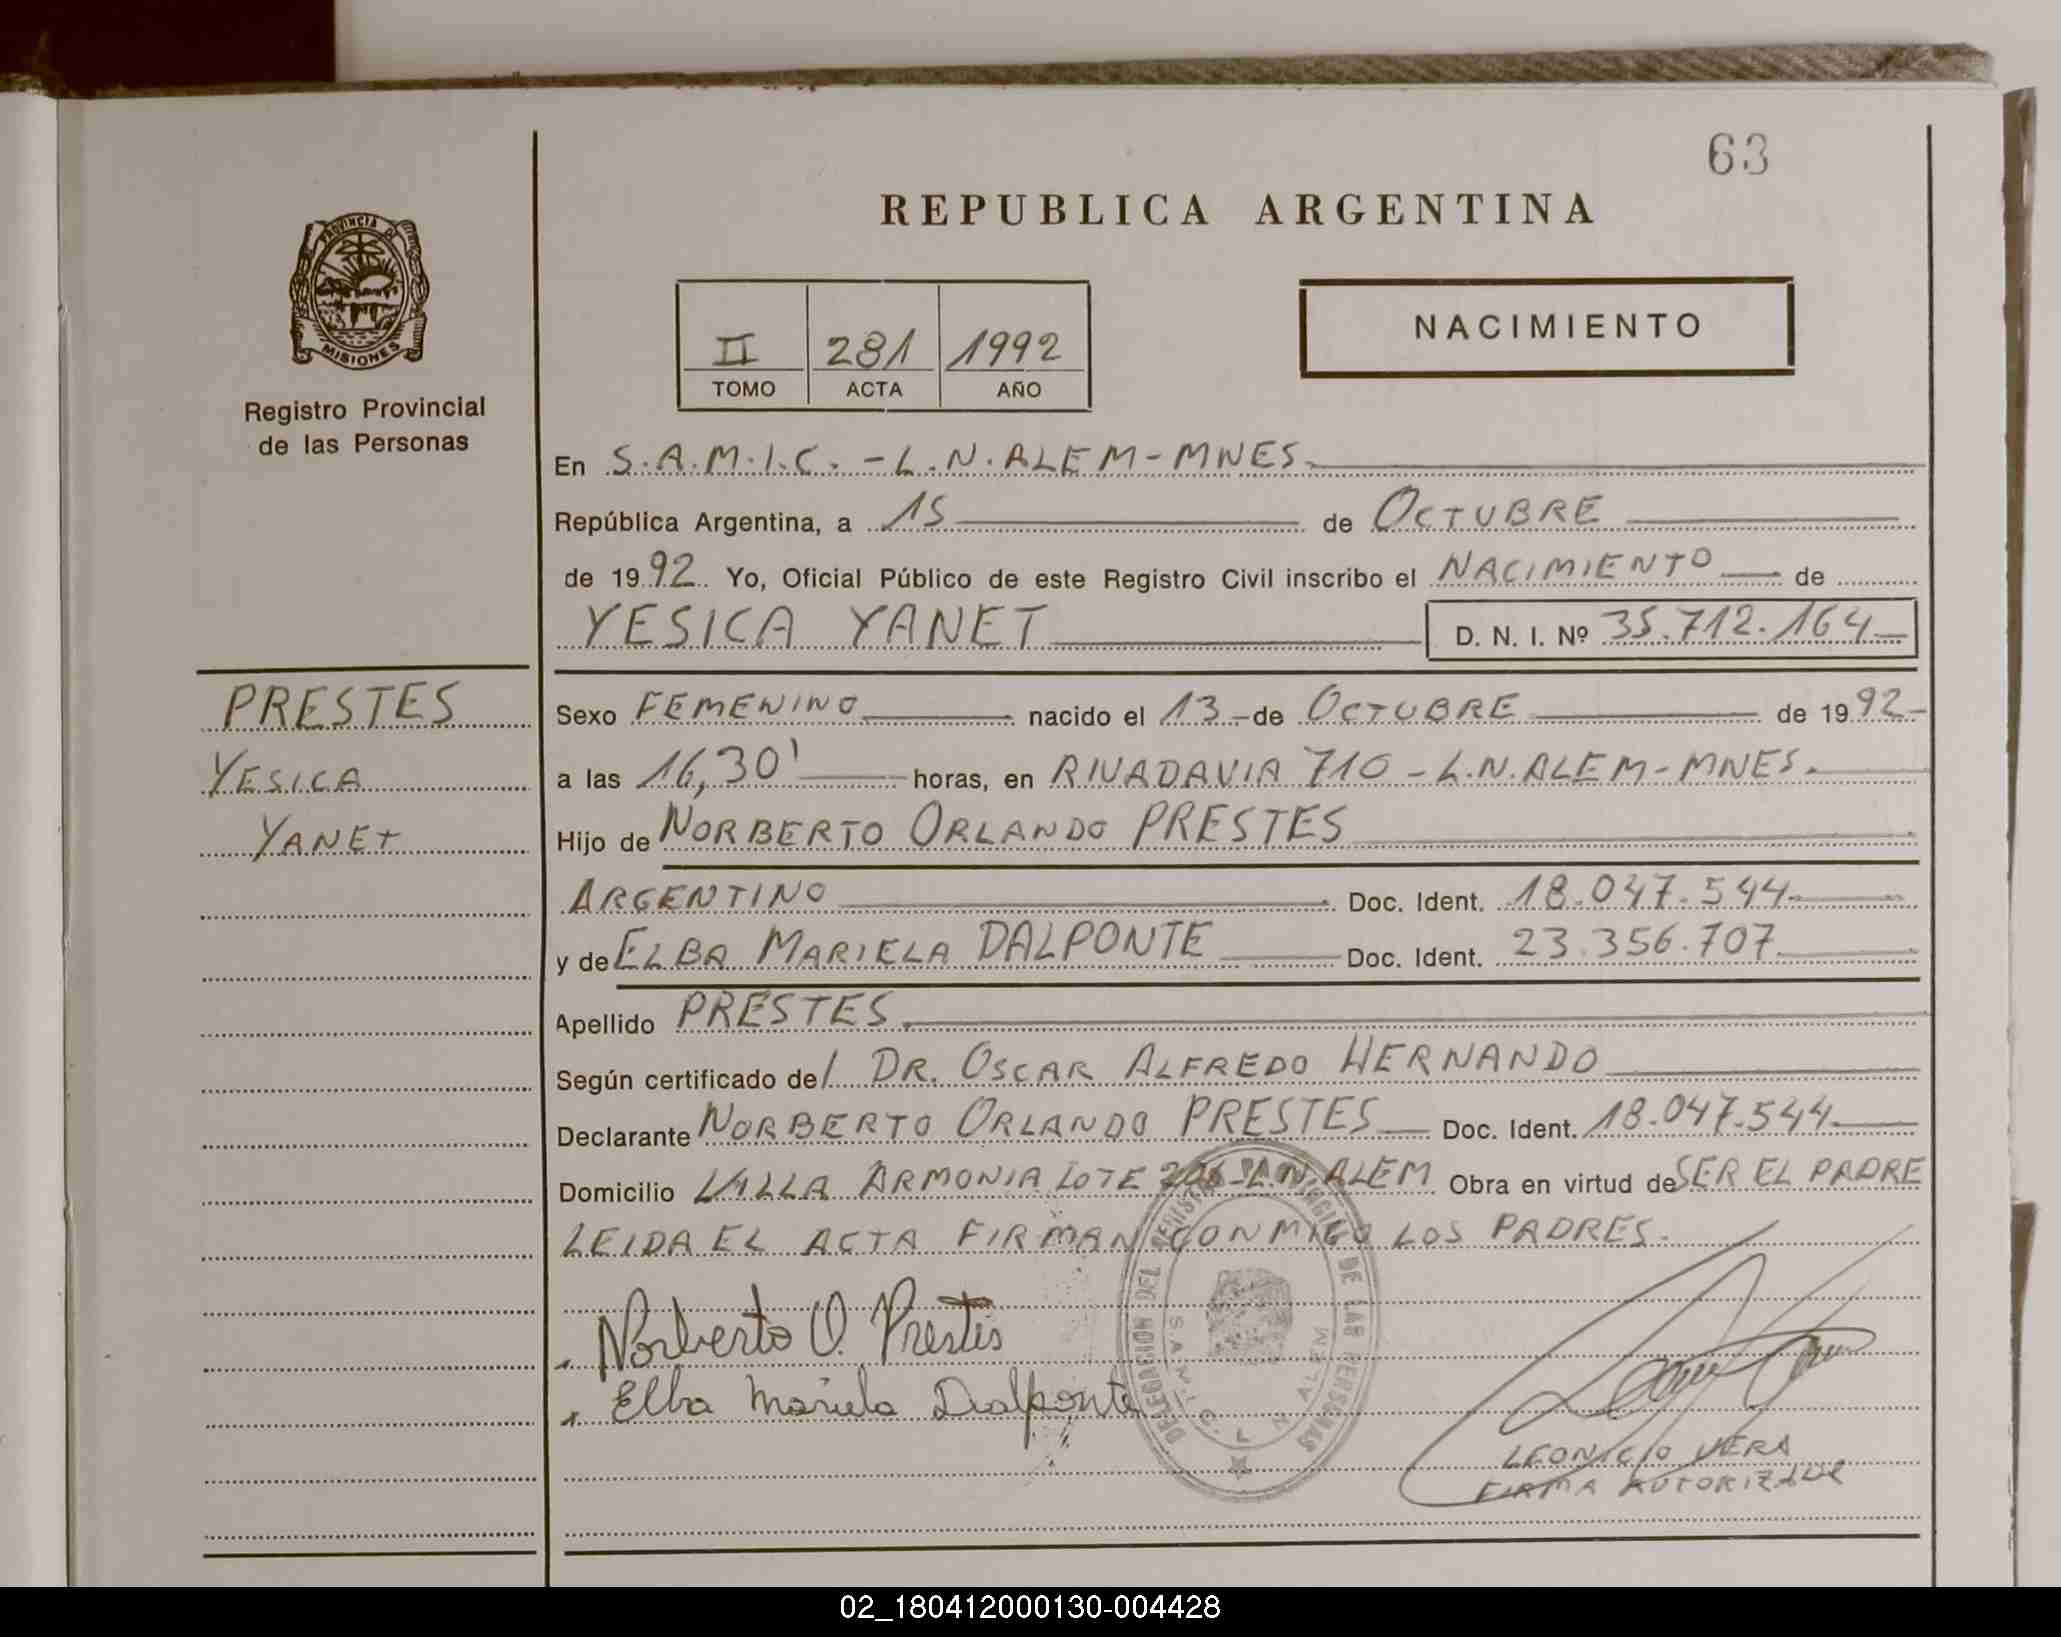 63
REPUBLICA ARGENTINA
PROVINCIA DE
MISIONES
Registro Provincial
de las Personas
II 281 1992
TOMO ACTA AÑO
NACIMIENTO
En S.A.M.I.C. - L.N.ALEM-MNES.
República Argentina, a 15 de OCTUBRE
de 1992 Yo, Oficial Público de este Registro Civil inscribo el NACIMIENTO de
YESICA YANET D. N. I. Nº 35.712.164
PRESTES
YESICA
YANET
Sexo FEMENINO nacido el 13 de OCTUBRE de 1992-
a las 16,30' horas, en RIVADAVIA 710 - L.N.ALEM-MNES.
Hijo de NORBERTO ORLANDO PRESTES
ARGENTINO Doc. Ident. 18.047.544
y de ELBA MARIELA DALPONTE Doc. Ident. 23.356.707
Apellido PRESTES.
Según certificado de/ DR. OSCAR ALFREDO HERNANDO
Declarante NORBERTO ORLANDO PRESTES Doc. Ident. 18.047.544
Domicilio VILLA ARMONIA LOTE L.N.ALEM Obra en virtud de SER EL PADRE
LEIDA EL ACTA FIRMAN CONMIGO LOS PADRES.
Norberto O. Prestes
Elba Mariela Dalponte
DELEGACION DEL REGISTRO PROVINCIAL DE LAS PERSONAS
S.A.M.I.C. L. N. ALEM
LEONICIO VERA
FIRMA AUTORIZADA
02_180412000130-004428